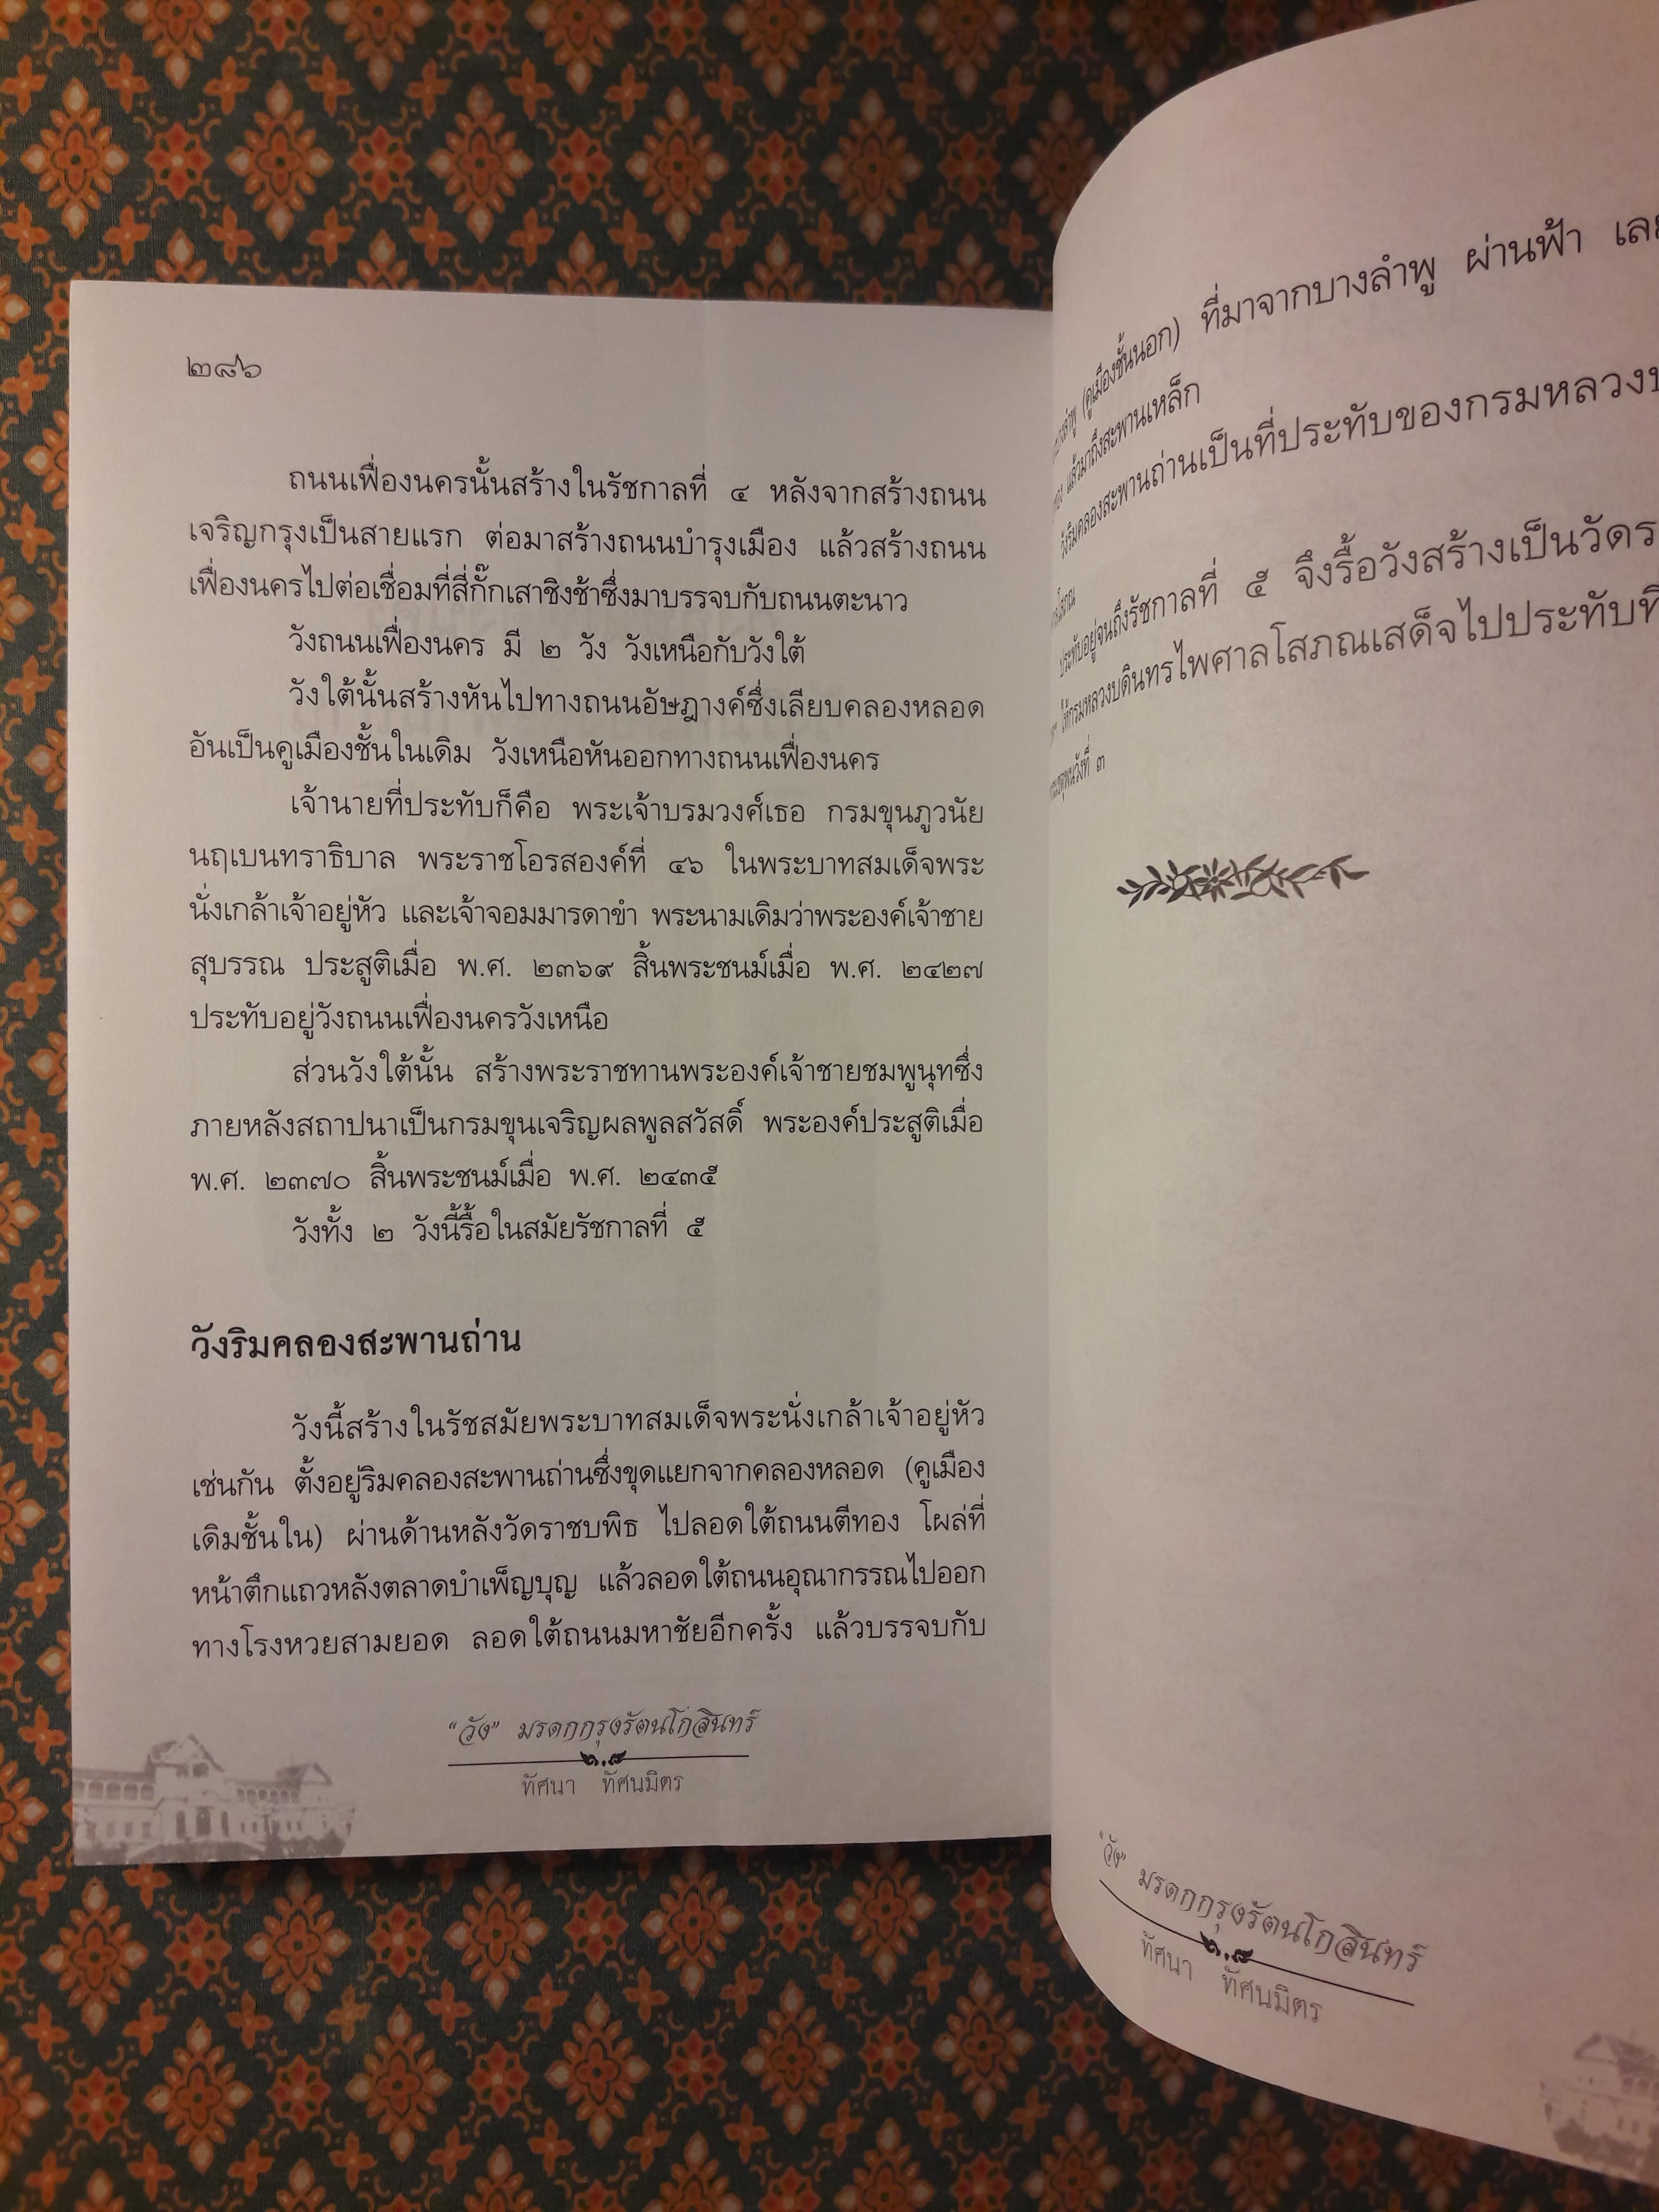 ๒๘๖
ถนนเฟื่องนครนั้นสร้างในรัชกาลที่ ๔ หลังจากสร้างถนน
เจริญกรุงเป็นสายแรก ต่อมาสร้างถนนบำรุงเมือง แล้วสร้างถนน
เฟื่องนครไปต่อเชื่อมที่สี่กั๊กเสาชิงช้าซึ่งมาบรรจบกับถนนตะนาว
วังถนนเฟื่องนคร มี ๒ วัง วังเหนือกับวังใต้
วังใต้นั้นสร้างหันไปทางถนนอัษฎางค์ซึ่งเลียบคลองหลอด
อันเป็นคูเมืองชั้นในเดิม วังเหนือหันออกทางถนนเฟื่องนคร
เจ้านายที่ประทับก็คือ พระเจ้าบรมวงศ์เธอ กรมขุนภูวนัย
นฤเบนทราธิบาล พระราชโอรสองค์ที่ ๔๖ ในพระบาทสมเด็จพระ
นั่งเกล้าเจ้าอยู่หัว และเจ้าจอมมารดาขำ พระนามเดิมว่าพระองค์เจ้าชาย
สุบรรณ ประสูติเมื่อ พ.ศ. ๒๓๖๙ สิ้นพระชนม์เมื่อ พ.ศ. ๒๔๒๗
ประทับอยู่วังถนนเฟื่องนครวังเหนือ
ส่วนวังใต้นั้น สร้างพระราชทานพระองค์เจ้าชายชมพูนุทซึ่ง
ภายหลังสถาปนาเป็นกรมขุนเจริญผลพูลสวัสดิ์ พระองค์ประสูติเมื่อ
พ.ศ. ๒๓๗๐ สิ้นพระชนม์เมื่อ พ.ศ. ๒๔๓๕
วังทั้ง ๒ วังนี้รื้อในสมัยรัชกาลที่ ๕
วังริมคลองสะพานถ่าน
วังนี้สร้างในรัชสมัยพระบาทสมเด็จพระนั่งเกล้าเจ้าอยู่หัว
เช่นกัน ตั้งอยู่ริมคลองสะพานถ่านซึ่งขุดแยกจากคลองหลอด (คูเมือง
เดิมชั้นใน) ผ่านด้านหลังวัดราชบพิธ ไปลอดใต้ถนนตีทอง โผล่ที่
หน้าตึกแถวหลังตลาดบำเพ็ญบุญ แล้วลอดใต้ถนนอุณากรรณไปออก
ทางโรงหวยสามยอด ลอดใต้ถนนมหาชัยอีกครั้ง แล้วบรรจบกับ
"วัง" มรดกกรุงรัตนโกสินทร์
ทัศนา ทัศนมิตร
(คูเมืองชั้นนอก) ที่มาจากบางลำพู ผ่านฟ้า
แล้วมาถึงสะพานเหล็ก
วังริมคลองสะพานถ่านเป็นที่ประทับของกรมหลวง
ประทับอยู่จนถึงรัชกาลที่ ๕ จึงรื้อวังสร้างเป็นวัด
ให้กรมหลวงบดินทรไพศาลโสภณเสด็จไปประทับ
"วัง" มรดกกรุงรัตนโกสินทร์
ทัศนา ทัศนมิตร